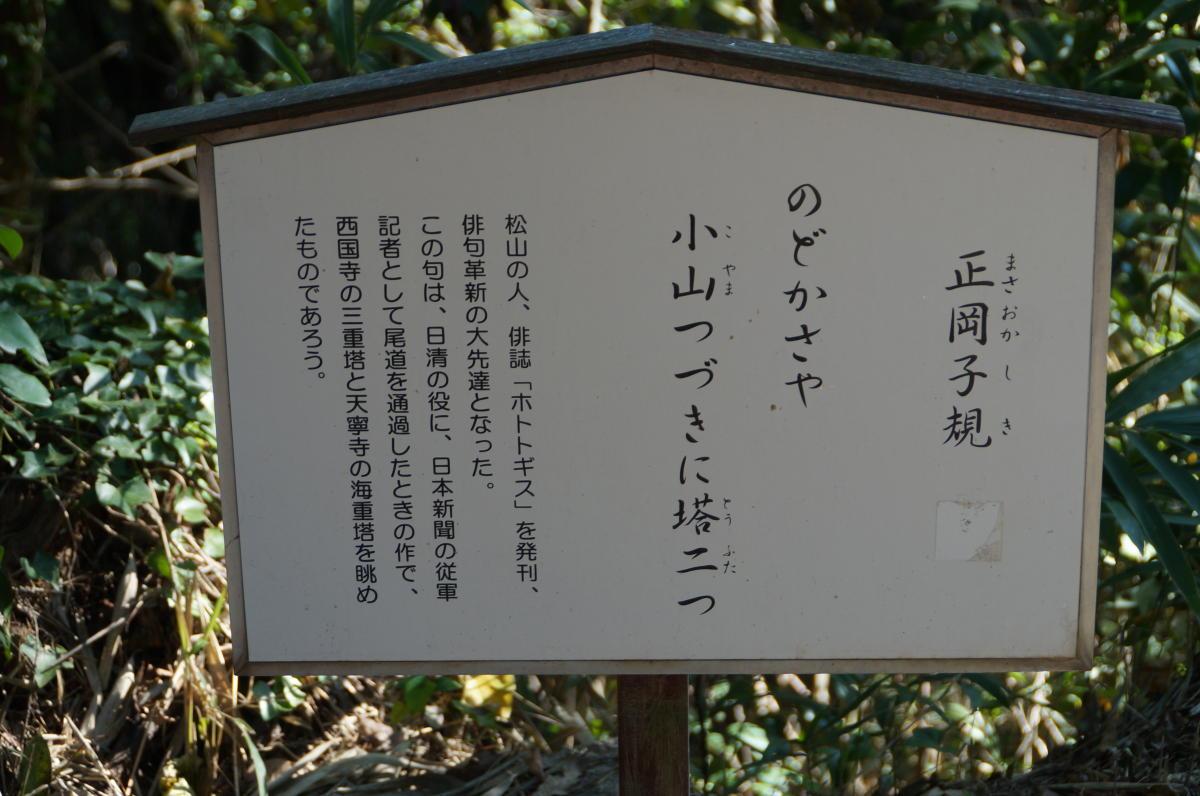 正岡子規
まさおかしき
のどかさや
小山つづきに塔二つ
こやま とう ふた
松山の人、俳誌「ホトトギス」を発刊、
俳句革新の大先達となった。
この句は、日清の役に、日本新聞の従軍
記者として尾道を通過したときの作で、
西国寺の三重塔と天寧寺の海重塔を眺め
たものであろう。